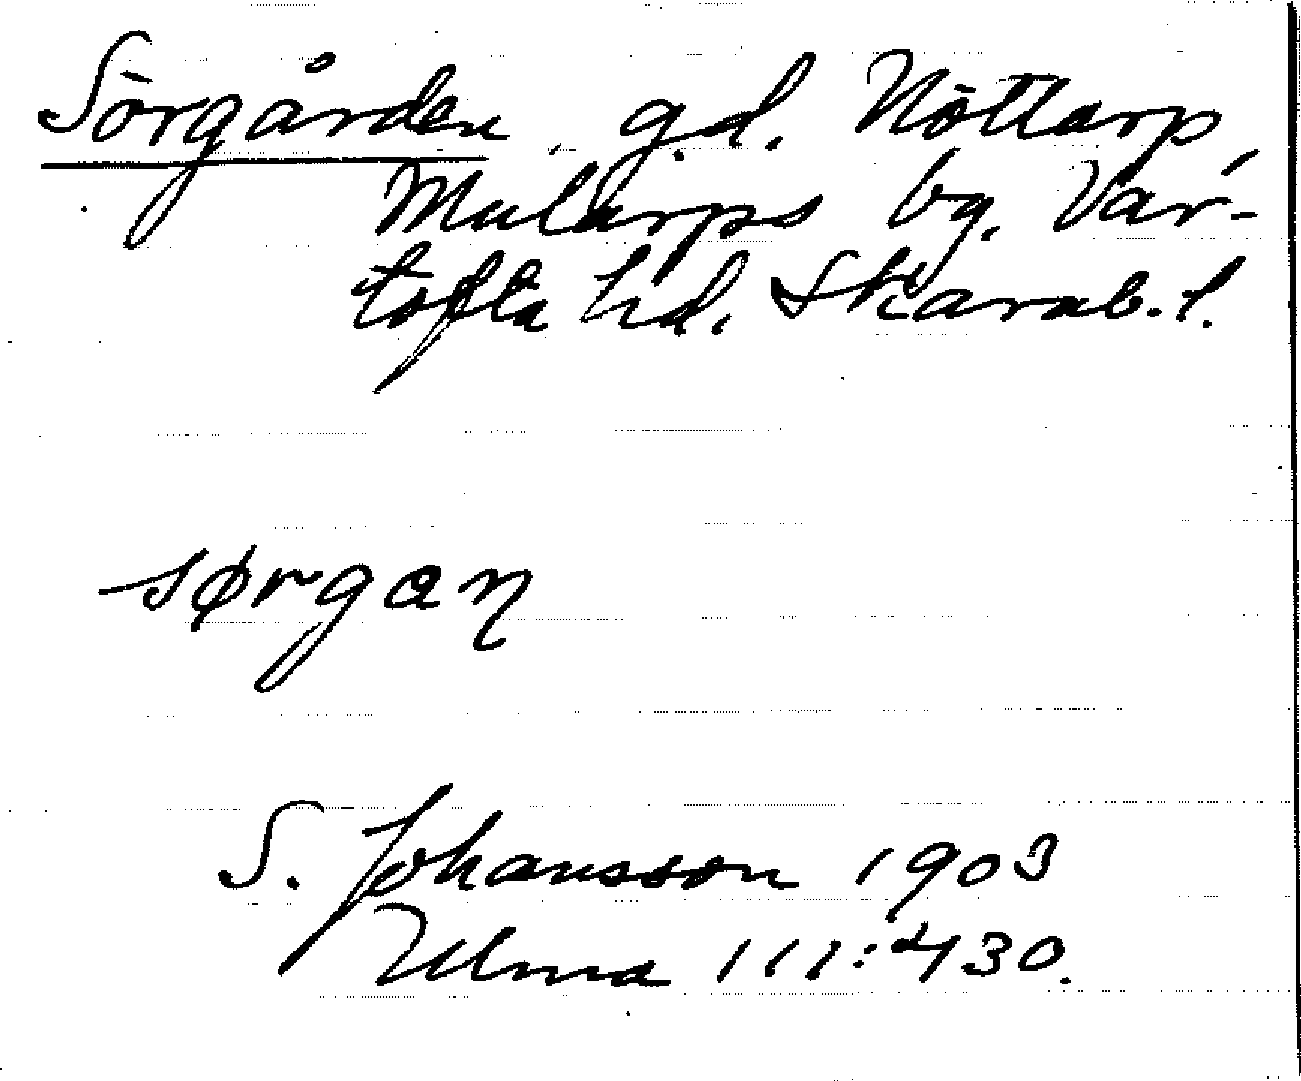 Sörgården g.d. Nöttarp
Mularps bg. Var-
tofta hd. Skarab. l.
sørgaɳ
S. Johansson 1903
Ulma 111:430.